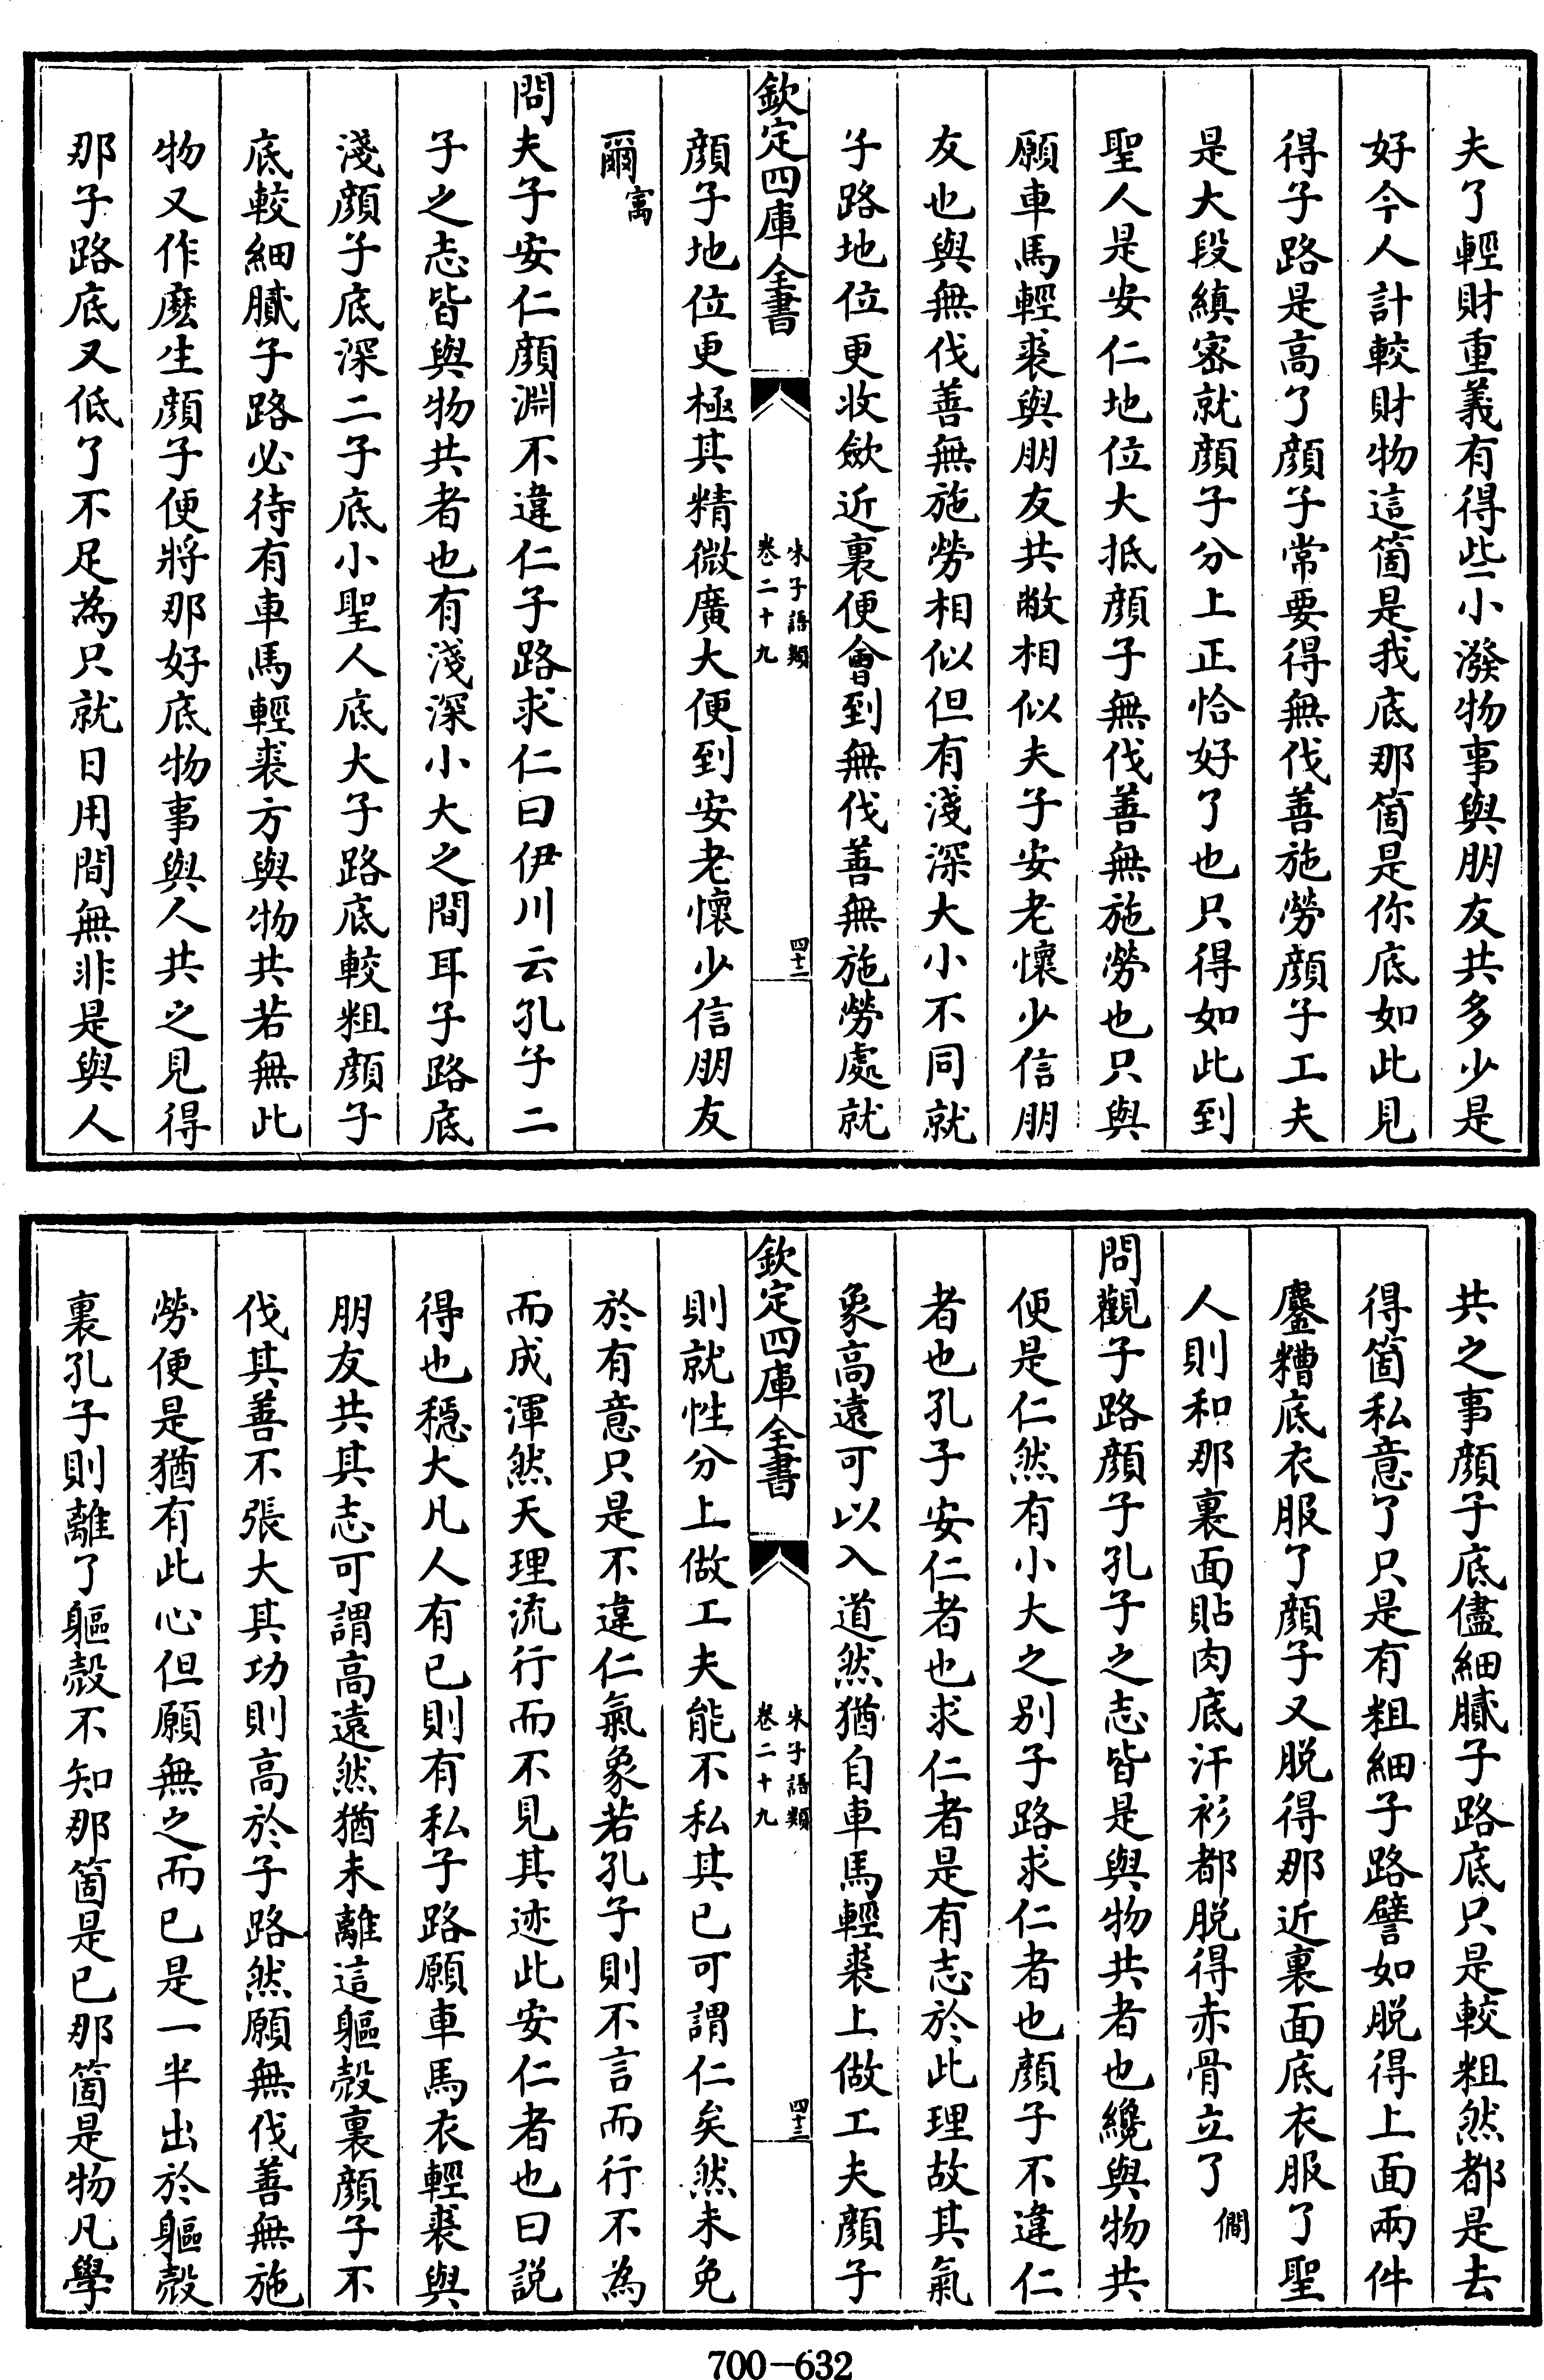 夫了輕財重義有得些小潑物事與朋友共多少是
好今人計較財物這箇是我底那箇是你底如此見
得子路是高了顔子常要得無伐善施勞顔子工夫
是大段縝宻就顔子分上正恰好了也只得如此到
聖人是安仁地位大抵顔子無伐善無施勞也只與
願車馬輕裘與朋友共敝相似夫子安老懷少信朋
友也與無伐善無施勞相似但有淺深大小不同就
子路地位更收斂近裏便會到無伐善無施勞處就
欽定四庫全書
朱子語類
卷二十九
四十二
顔子地位更極其精微廣大便到安老懷少信朋友
爾㝢
問夫子安仁顔淵不違仁子路求仁曰伊川云孔子二
子之志皆與物共者也有淺深小大之間耳子路底
淺顔子底深二子底小聖人底大子路底較粗顔子
底較細膩子路必待有車馬輕裘方與物共若無此
物又作麽生顔子便將那好底物事與人共之見得
那子路底又低了不足為只就日用間無非是與人
共之事顔子底儘細膩子路底只是較粗然都是去
得箇私意了只是有粗細子路譬如脱得上面兩件
鏖糟底衣服了顔子又脱得那近裏面底衣服了聖
人則和那裏面貼肉底汗衫都脱得赤骨立了 僩
問觀子路顔子孔子之志皆是與物共者也纔與物共
便是仁然有小大之别子路求仁者也顔子不違仁
者也孔子安仁者也求仁者是有志於此理故其氣
象高遠可以入道然猶自車馬輕裘上做工夫顔子
欽定四庫全書
朱子語類
卷二十九
四十三
則就性分上做工夫能不私其已可謂仁矣然未免
於有意只是不違仁氣象若孔子則不言而行不為
而成渾然天理流行而不見其迹此安仁者也曰説
得也穏大凡人有已則有私子路願車馬衣輕裘與
朋友共其志可謂高遠然猶未離這軀殼裏顔子不
伐其善不張大其功則高於子路然願無伐善無施
勞便是猶有此心但願無之而已是一半出於軀殼
裏孔子則離了軀殼不知那箇是已那箇是物凡學
700-632